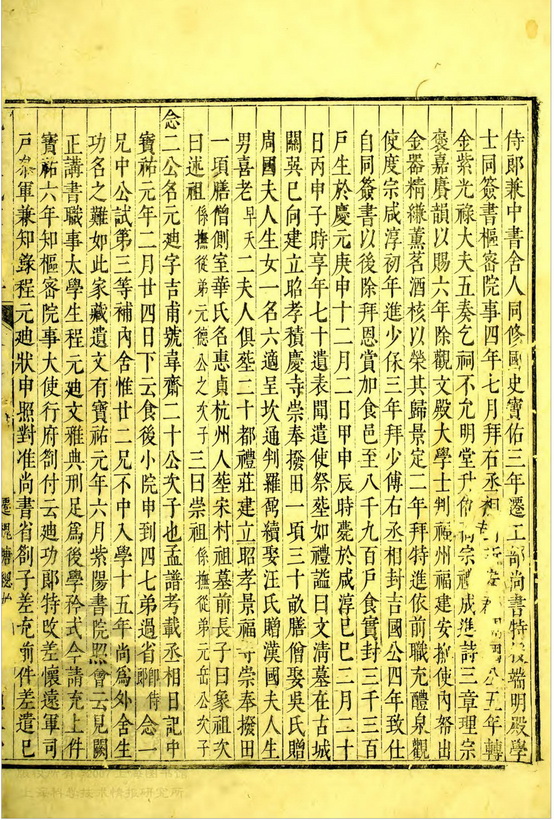 侍郎兼中書舍人同修國史寶佑三年遷工部尚書特 端明殿學
士同簽書樞密院事四年七月拜右丞相 五年轉
金紫光祿大夫五奏乞祠不允明堂升 宗禮成進詩三章理宗
褒嘉賡韻以賜六年除觀文殿大學士判福州福建安撫使內帑出
金器精縑薰茗酒核以榮其歸景定二年拜特進依前職充醴泉觀
使度宗咸淳初年進少保三年拜少傅右丞相封吉國公四年致仕
自同簽書以後除拜恩賞加食邑至八千九百戶食實封三千三百
戶生於慶元庚申十二月二日甲申辰時薨於咸淳己巳二月二十
日丙申子時享年七十遺表聞遣使祭塟如禮謚曰文清墓在古城
關巽巳向建立昭孝積慶寺崇奉撥田一項三十畝膳僧娶吳氏贈
周國夫人生女一名六適呈坎通判羅萬續娶汪氏贈漢國夫人生
男喜老早夭二夫人俱塟二十都禮莊建立昭孝景福寺崇奉撥田
一項膳僧側室華氏名惠貞杭州人塟宋村祖墓前長子曰象祖次
曰述祖係撫從弟元德公之次子三曰崇祖係撫從弟元岳公次子
念二公名元廸字吉甫號韋齋二十公次子也孟譜考載丞相日記中
寶祐元年二月廿四日下云食後小院申到四七弟過省即侍郎念一
兄中公試第三等補內舍惟廿二兄不中入學十五年尚為外舍生
功名之難如此家藏遺文有寶祐元年六月紫陽書院照會云見闕
正講書職事太學生程元廸文雅典刑足為後學矜式今請充上件
寶祐六年知樞密院事大使行府劄付云廸功郎特改差懷遠軍司
戶叅軍兼知錄程元廸狀申照對准尚書省劄子差充前件差遣已
上海科學技術情報研究所